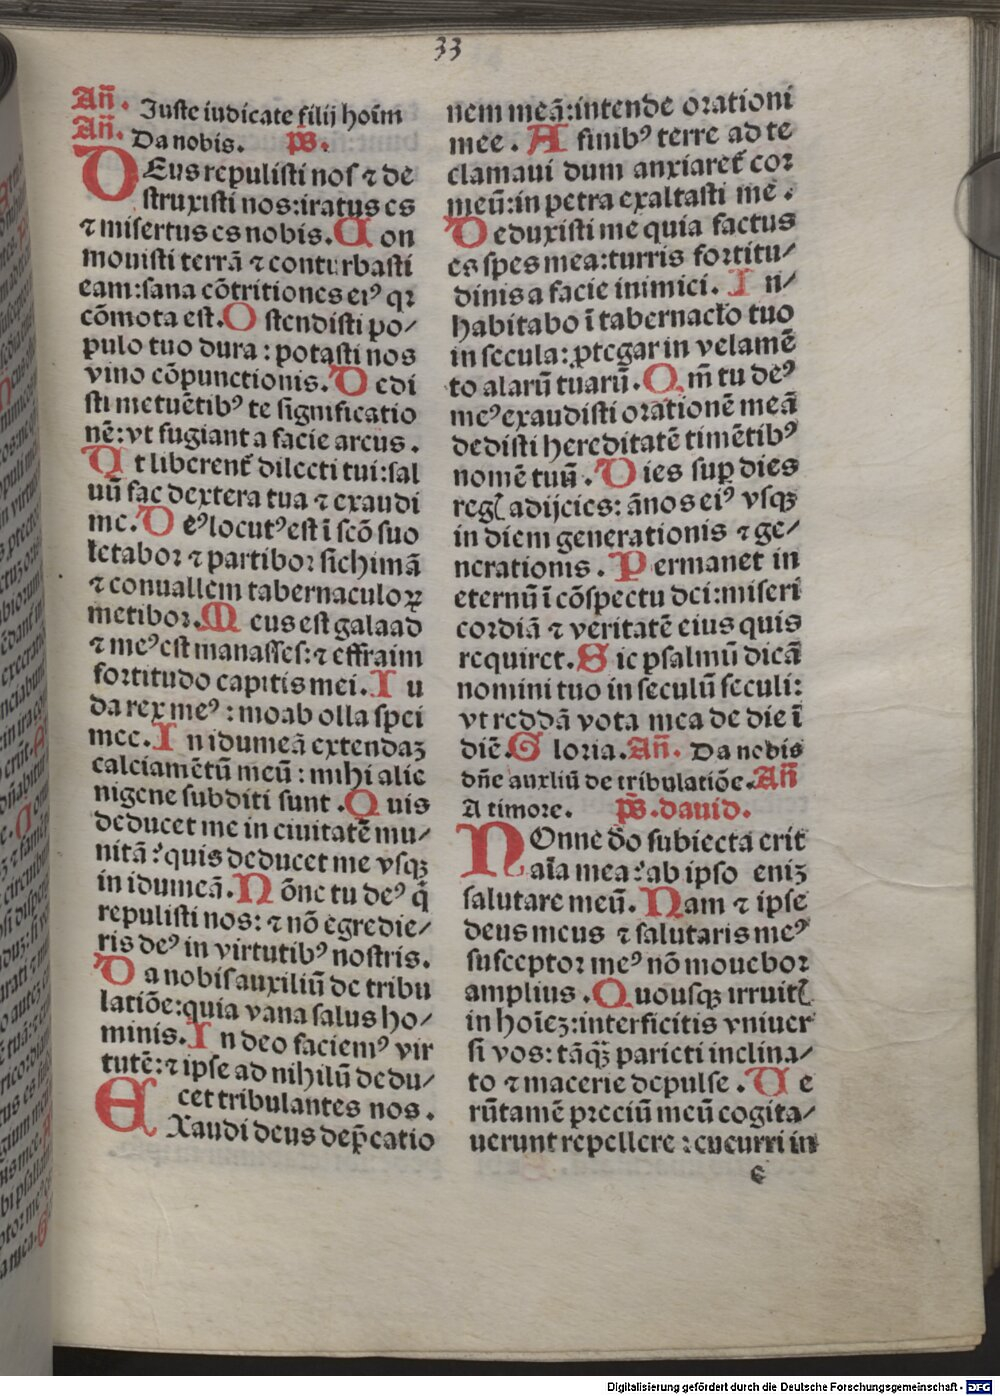 33
Añ. Juste iudicate filij hoim̄
Añ. Da nobis. p̄s.
DEus repulisti nos ⁊ de
struxisti nos:iratus es
⁊ misertus es nobis. Con
mouisti terrā ⁊ conturbasti
eam:sana cōtritiones eiꝰ qꝛ
cōmota est. Ostendisti po/
pulo tuo dura : potasti nos
vino cōpunctionis. Dedi
sti metuētibꝰ te significatio
nē:vt fugiant a facie arcus.
Ut liberent̄ dilecti tui:sal
uū fac dextera tua ⁊ exaudi
me. Deꝰ locutꝰ est ī scō suo
letabor ⁊ partibor sichimā
⁊ conuallem tabernaculoꝝ
metibor. Meus est galaad
⁊ meꝰ est manasses:⁊ effraim
fortitudo capitis mei. Iu
da rex meꝰ : moab olla spei
mee. In idumeā extendaꝫ
calciamētū meū : mihi alie
nigene subditi sunt . Quis
deducet me in ciuitatē mu/
nitā : quis deducet me vsqꝫ
in idumeā. Nōne tu deꝰ q̄
repulisti nos: ⁊ nō egredie/
ris deꝰ in virtutibꝰ nostris.
Da nobis auxiliū de tribu
latiōe:quia vana salus ho/
minis. In deo faciemꝰ vir
tutē:⁊ ipse ad nihilū dedu/
cet tribulantes nos.
EXaudi deus dep̄catio
nem meā:intende orationi
mee . A finibꝰ terre ad te
clamaui dum anxiaret̄ cor
meū:in petra exaltasti me .
Deduxisti me quia factus
es spes mea:turris fortitu/
dinis a facie inimici. In/
habitabo ī tabernacl̄o tuo
in secula: ꝓtegar in velamē
to alarū tuarū. Qm̄ tu deꝰ
meꝰ exaudisti orationē meā
dedisti hereditatē timētibꝰ
nomē tuū . Dies suꝑ dies
reḡ adijcies: ānos eiꝰ vsqꝫ
in diem generationis ⁊ ge/
nerationis . Permanet in
eternū ī cōspectu dei:miseri
cordiā ⁊ veritatē eius quis
requiret. Sic psalmū dicā
nomini tuo in seculū seculi:
vt reddā vota mea de die ī
diē. Gloria. Añ. Da nobis
dn̄e auxliū de tribulatiōe. Añ
A timore. p̄s. dauid.
NOnne dō subiecta erit
aīa mea : ab ipso eniꝫ
salutare meū. Nam ⁊ ipse
deus meus ⁊ salutaris meꝰ
susceptor meꝰ nō mouebor
amplius . Quousqꝫ irruit̄
in hoīeꝫ:interficitis vniuer
si vos: tāqꝫ parieti inclina/
to ⁊ macerie depulse . Ue
rūtamē preciū meū cogita/
uerunt repellere : cucurri in
e
Digitalisierung gefördert durch die Deutsche Forschungsgemeinschaft - DFG